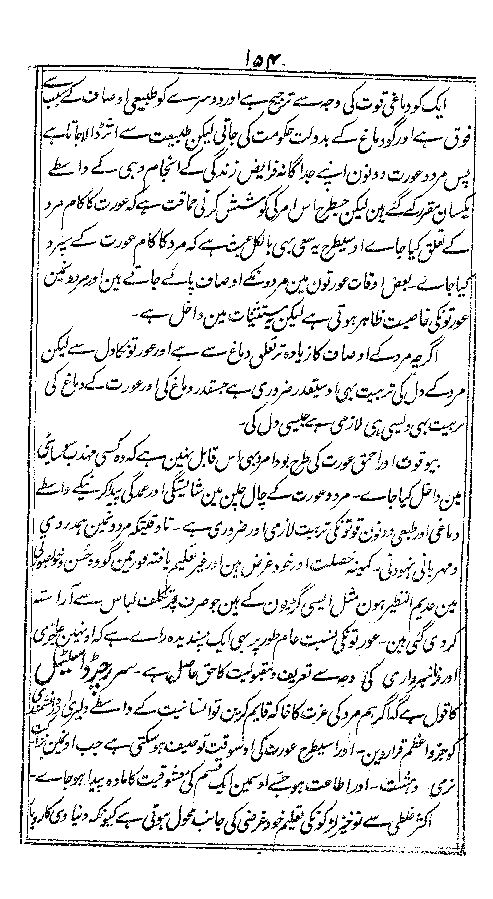 ۱۵۴
ایک کو دماغی قوت کی وجہ سے ترجیح ہے اور دوسرے کو طبیعی اوصاف کے سبب سے
فوق ہے اور گو دماغ کے بدولت حکومت کی جاتی لیکن طبیعت سے اثر ڈالا جاتا ہے
پس مرد و عورت دونون اپنے جداگانہ فرایض زندگی کے انجام دہی کے واسطے
یکسان مقرر کئے گئے ہین لیکن جسطرح اس امر کی کوشش کرنی حماقت ہے کہ عورت کا کام مرد
کے تعلق کیا جاے اوسیطرح یہ سعی بہی بالکل عبث ہے کہ مرد کا کام عورت کے سپرد
کیا جاے۔ بعض اوقات عورتون مین مردونکے اوصاف پائے جاتے ہین اور مردونمین
عورتونکی خاصیت ظاہر ہوتی ہے لیکن یہ مستثنیات مین داخل ہے۔
اگرچہ مرد کے اوصاف کا زیادہ تر تعلق دماغ سے ہے اور عورتونکا دل سے لیکن
مرد کے دل کی تربیت بہی اوسیقدر ضروری ہے جسقدر دماغ کی اور عورت کے دماغ کی
تربیت بہی ویسی ہی لازمی ہے جیسی دل کی۔
بیوقوف اور احمق عورت کی طرح بودا مرد بہی اس قابل نہین ہے کہ وہ کسی مہذب سوسائٹی
مین داخل کیا جاے۔ مرد و عورت کے چال چلن مین شایستگی اور عمدگی پیدا کرنیکے واسطے
دماغی اور طبعی دونون قوتونکی تربیت لازمی اور ضروری ہے۔ تاوقتیکہ مردونمین ہمدردی
و مہربانی نہو دنی۔ کمینہ خصلت اور خود غرض ہین اور غیر تعلیم یافتہ عورتین گو وہ حسن و خوبصورتی
مین عدیم النظیر ہون مثل ایسی گڑیون کے ہین جو صرف پرتکلف لباس سے آراستہ
کر دی گئی ہین۔ عورتونکی نسبت عام طور پر یہی ایک پسندیدہ راے ہے کہ اونہین عاجزی
اور فرمانبرداری کی وجہ سے تعریف و مقبولیت کا حق حاصل ہے۔ سر رچرڈ اسٹیل
کا قول ہے کہ اگر ہم مرد کی عزت کا خاکہ قایم کرین تو انسانیت کے واسطے دلیری و دانشمندی
کو جزو اعظم قرار دین۔ اور اسیطرح عورت کی اوسوقت توصیف ہو سکتی ہے جب اونمین
نرمی و دہشت۔ اور اطاعت ہو جسے اوسمین ایک قسم کی معشوقیت کا مادہ پیدا ہو جاے۔
اکثر غلطی سے نوخیز لڑکونکی تعلیم خود غرضی کی جانب محول ہوتی ہے کیونکہ دنیاوی کاروبا